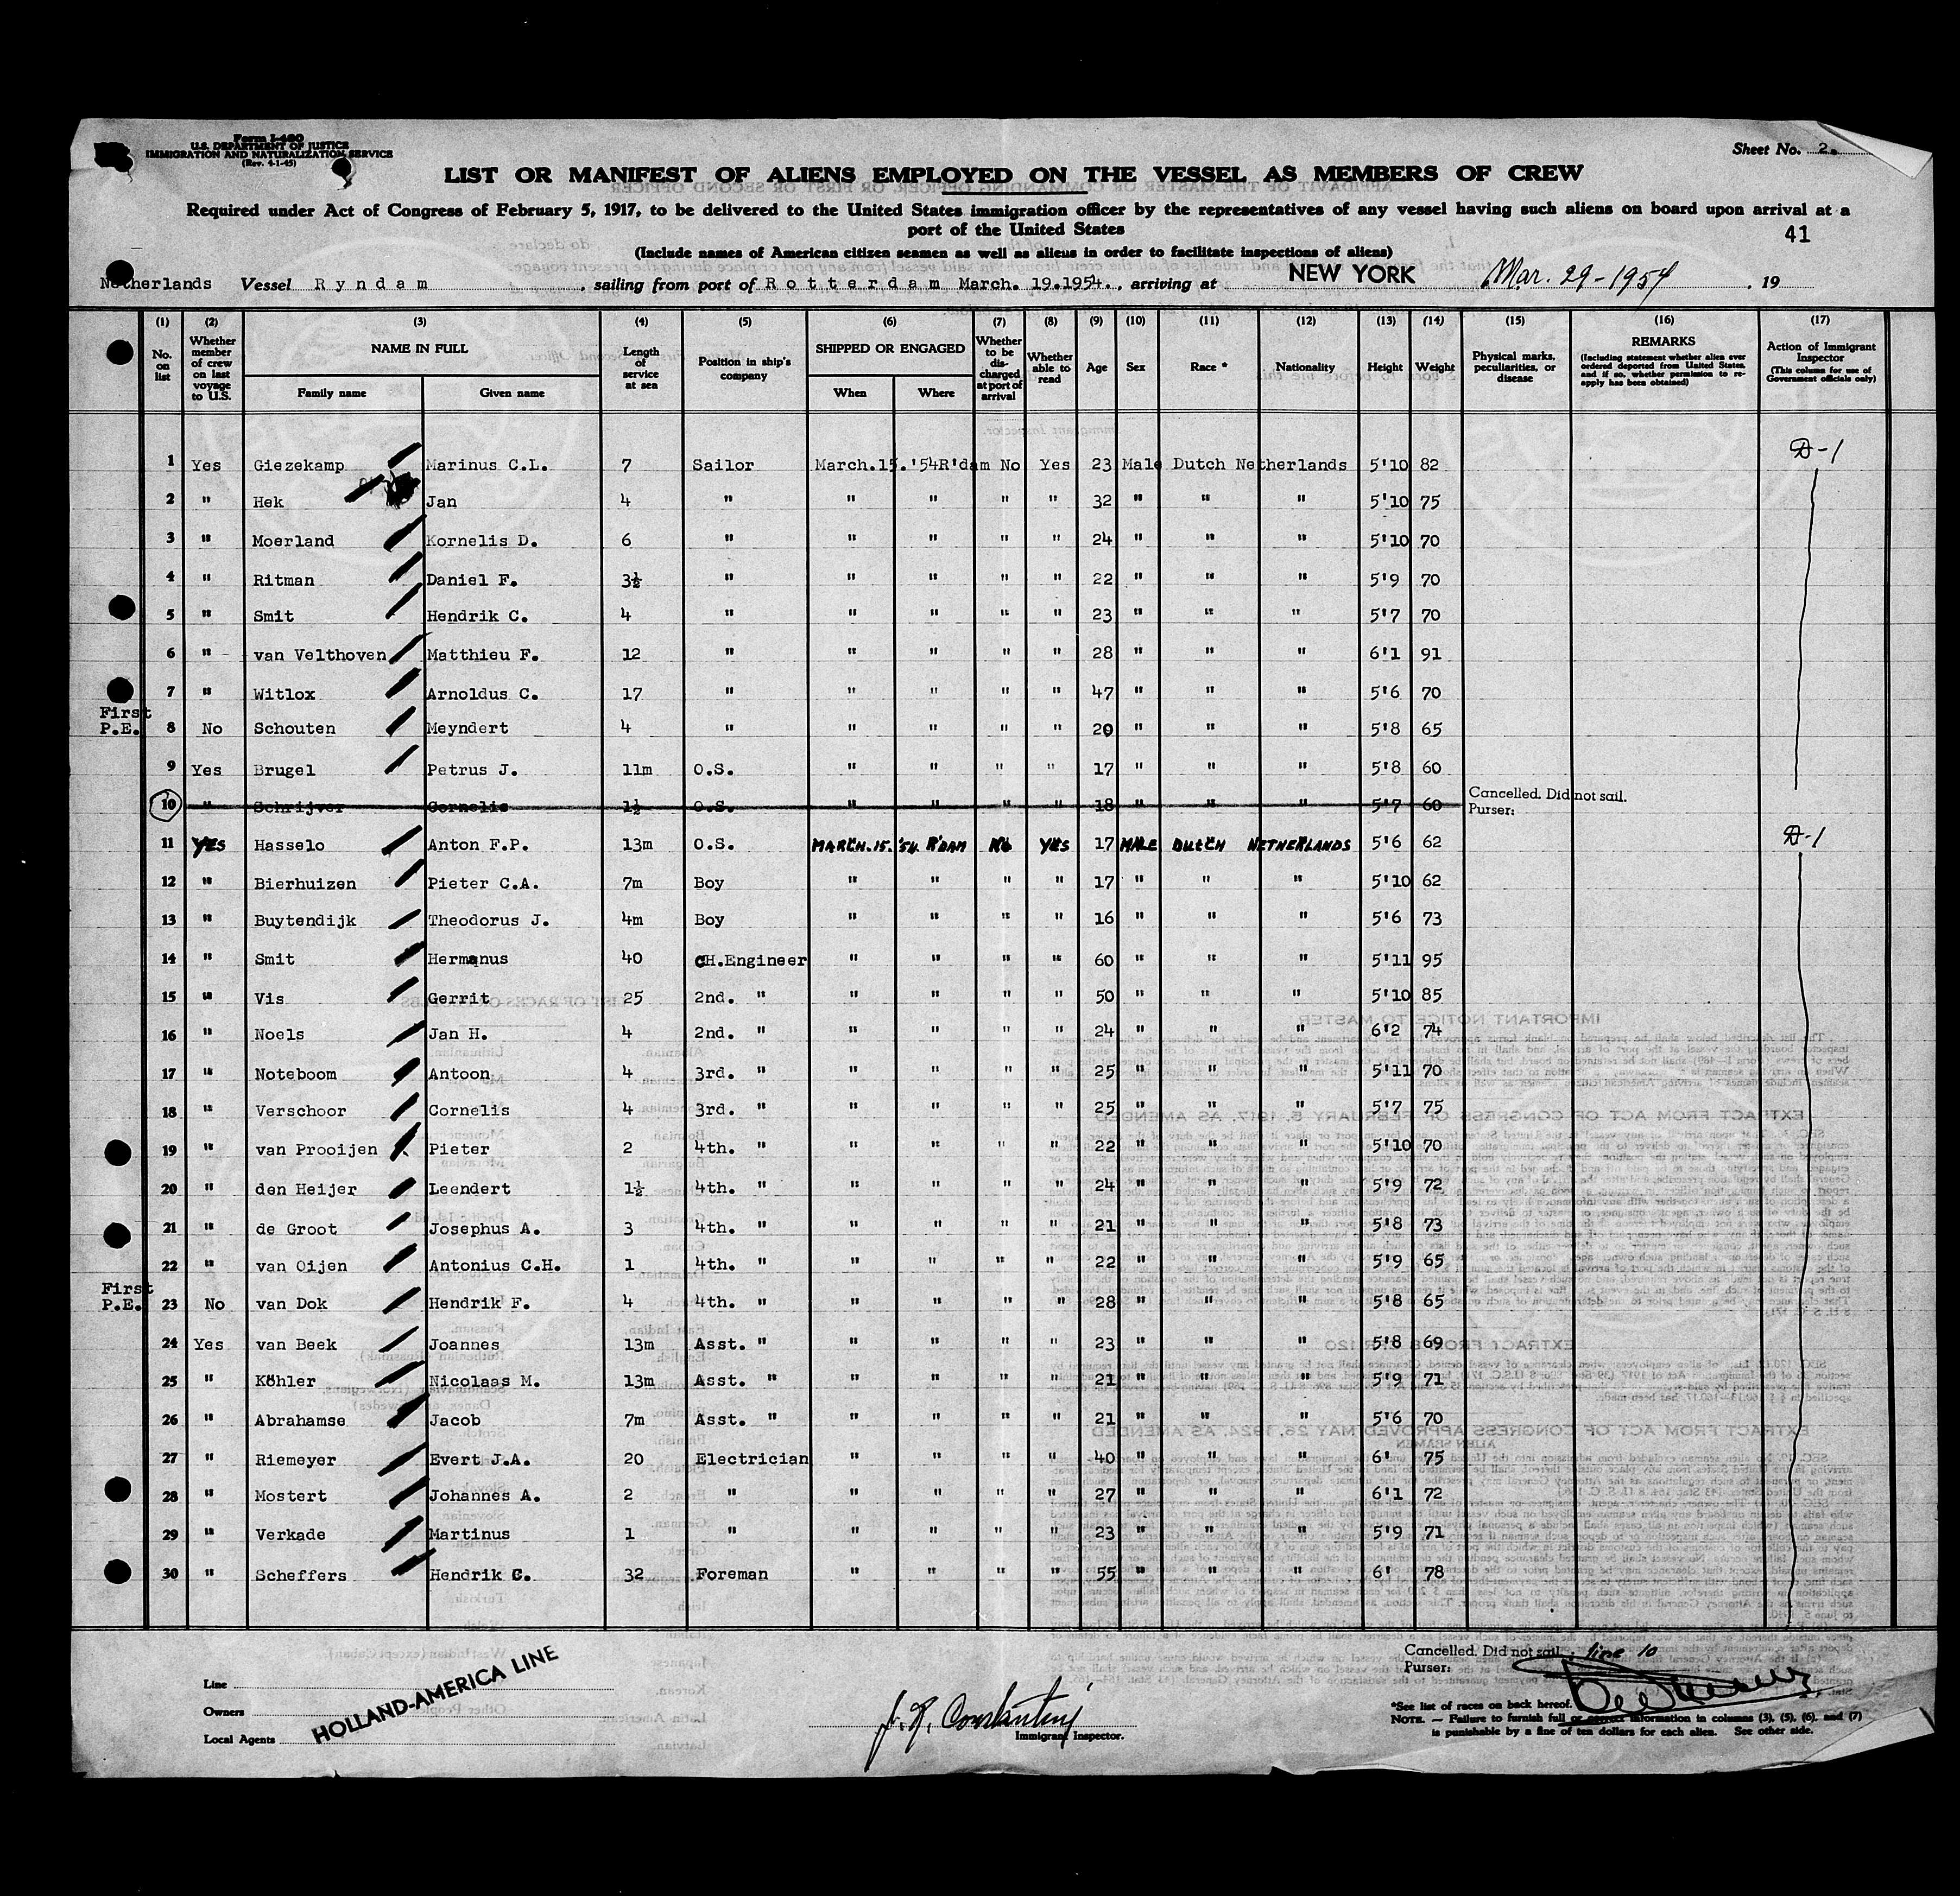 Form I-480
U.S. DEPARTMENT OF JUSTICE
IMMIGRATION AND NATURALIZATION SERVICE
(Rev. 4-1-45)
Sheet No. 2.
LIST OR MANIFEST OF ALIENS EMPLOYED ON THE VESSEL AS MEMBERS OF CREW
Required under Act of Congress of February 5, 1917, to be delivered to the United States immigration officer by the representatives of any vessel having such aliens on board upon arrival at a
port of the United States
41
(Include names of American citizen seamen as well as aliens in order to facilitate inspections of aliens)
Netherlands Vessel Ryndam, sailing from port of Rotterdam March. 19.1954., arriving at NEW YORK Mar. 29-1954, 19
(1) (2) (3) (4) (5) (6) (7) (8) (9) (10) (11) (12) (13) (14) (15) (16) (17)
No. on list
Whether member of crew on last voyage to U.S.
NAME IN FULL
Family name
Given name
Length of service at sea
Position in ship's company
SHIPPED OR ENGAGED
When
Where
Whether to be discharged at port of arrival
Whether able to read
Age
Sex
Race *
Nationality
Height
Weight
Physical marks, peculiarities, or disease
REMARKS
(Including statement whether alien ever ordered deported from United States, and if so, whether permission to reapply has been obtained)
Action of Immigrant Inspector
(This column for use of Government officials only)
1 Yes Giezekamp Marinus C.L. 7 Sailor March.15.'54 R'dam No Yes 23 Male Dutch Netherlands 5'10 82 D-1
2 " Hek Jan 4 " " " " " 32 " " " 5'10 75
3 " Moerland Kornelis D. 6 " " " " " 24 " " " 5'10 70
4 " Ritman Daniel F. 3½ " " " " " 22 " " " 5'9 70
5 " Smit Hendrik C. 4 " " " " " 23 " " " 5'7 70
6 " van Velthoven Matthieu F. 12 " " " " " 28 " " " 6'1 91
7 " Witlox Arnoldus C. 17 " " " " " 47 " " " 5'6 70
First P.E. 8 No Schouten Meyndert 4 " " " " " 20 " " " 5'8 65
9 Yes Brugel Petrus J. 11m O.S. " " " " 17 " " " 5'8 60
10 " Schrijver Cornelis 1½ O.S. " " " " 18 " " " 5'7 60 Cancelled. Did not sail. Purser:
11 YES Hasselo Anton F.P. 13m O.S. MARCH.15.'54. R'DAM No YES 17 MALE DUTCH NETHERLANDS 5'6 62 D-1
12 " Bierhuizen Pieter C.A. 7m Boy " " " " 17 " " " 5'10 62
13 " Buytendijk Theodorus J. 4m Boy " " " " 16 " " " 5'6 73
14 " Smit Hermanus 40 CH.Engineer " " " " 60 " " " 5'11 95
15 " Vis Gerrit 25 2nd. " " " " " 50 " " " 5'10 85
16 " Noels Jan H. 4 2nd. " " " " " 24 " " " 6'2 74
17 " Noteboom Antoon 4 3rd. " " " " " 25 " " " 5'11 70
18 " Verschoor Cornelis 4 3rd. " " " " " 25 " " " 5'7 75
19 " van Prooijen Pieter 2 4th. " " " " " 22 " " " 5'10 70
20 " den Heijer Leendert 1½ 4th. " " " " " 24 " " " 5'9 72
21 " de Groot Josephus A. 3 4th. " " " " " 21 " " " 5'8 73
22 " van Oijen Antonius C.H. 1 4th. " " " " " 22 " " " 5'9 65
First P.E. 23 No van Dok Hendrik F. 4 4th. " " " " " 28 " " " 5'8 65
24 Yes van Beek Joannes 13m Asst. " " " " " 23 " " " 5'8 69
25 " Köhler Nicolaas M. 13m Asst. " " " " " 21 " " " 5'9 71
26 " Abrahamse Jacob 7m Asst. " " " " " 21 " " " 5'6 70
27 " Riemeyer Evert J.A. 20 Electrician " " " " 40 " " " 6' 75
28 " Mostert Johannes A. 2 " " " " " 27 " " " 6'1 72
29 " Verkade Martinus 1 " " " " " 23 " " " 5'9 71
30 " Scheffers Hendrik C. 32 Foreman " " " " 55 " " " 6' 78
Cancelled. Did not sail. line 10
Purser:
Line
Owners
Local Agents
HOLLAND-AMERICA LINE
Immigrant Inspector.
*See list of races on back hereof.
NOTE. — Failure to furnish full or correct information in columns (3), (5), (6), and (7)
is punishable by a fine of ten dollars for each alien. See other side.